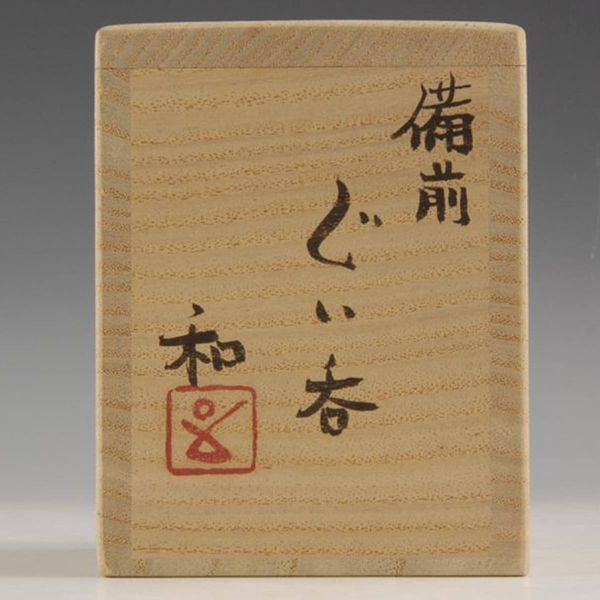 備前
ぐい呑
和